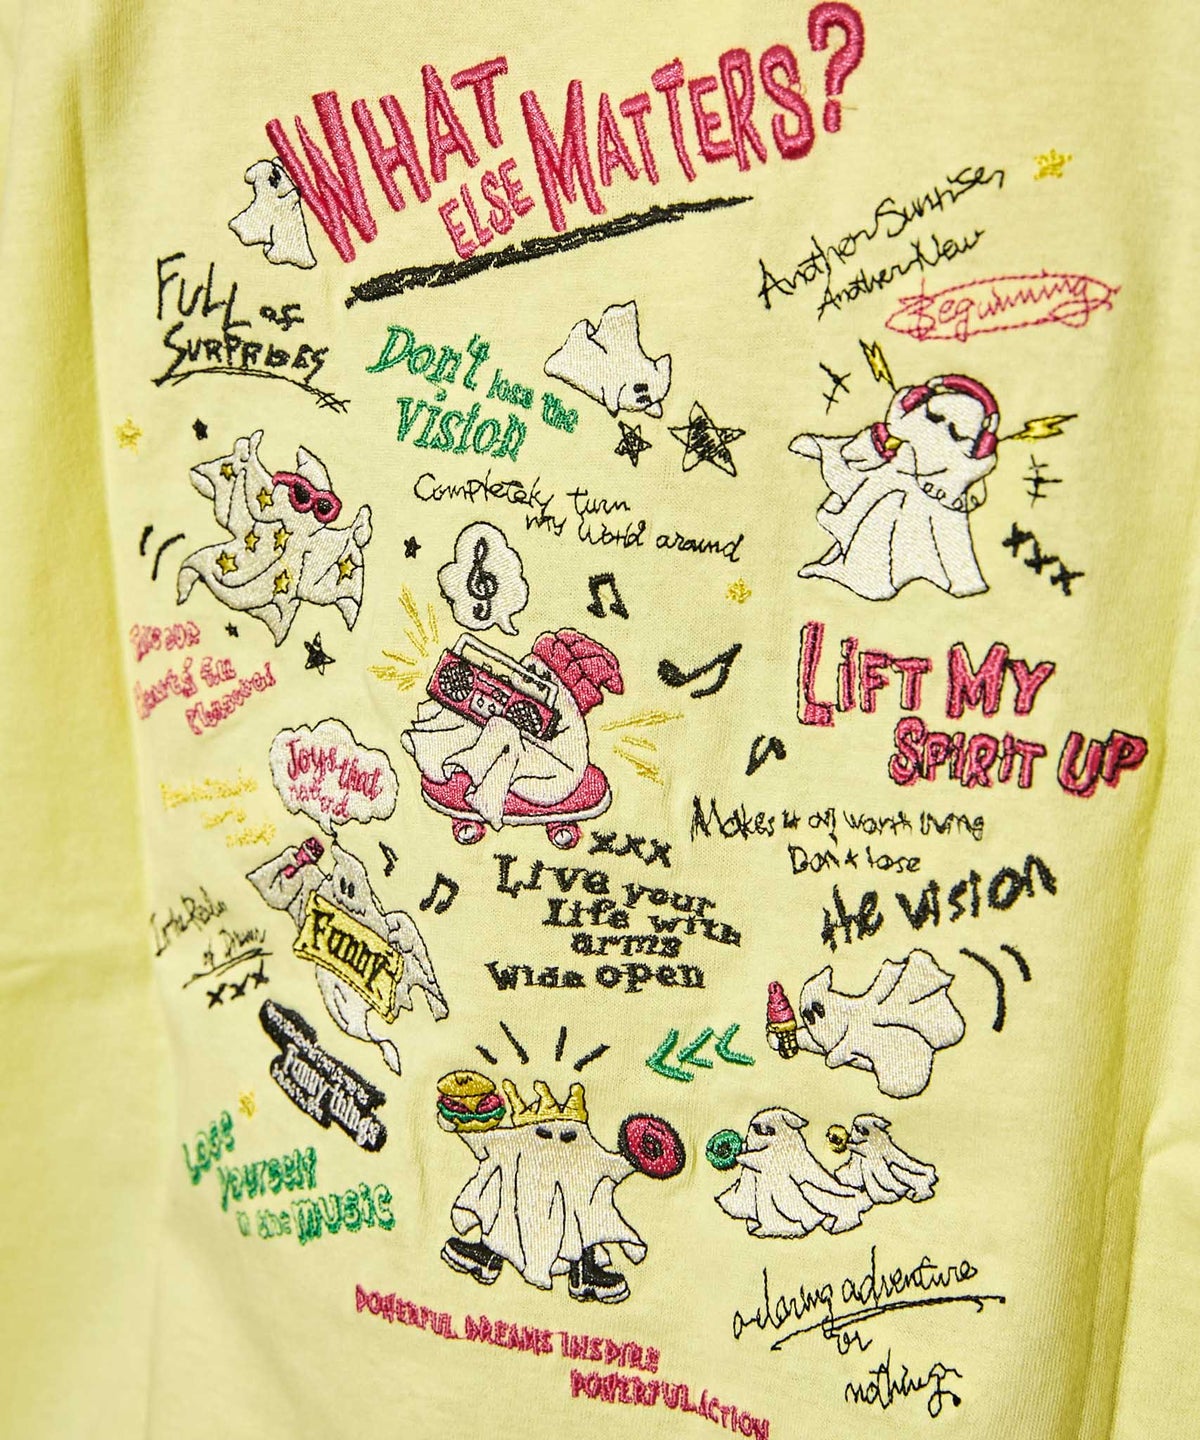 WHAT
ELSE MATTERS?
FULL OF
SURPRISES
Another Sunrise,
Another New
Beginning
Don't lose the
Vision
Completely turn
my World around
LIFT MY
SPIRIT UP
Joys that
Makes it all worth living
Don't lose
the vision
Live your
Life with
arms
Wide open
Funny
Funny things
LOSE
yourself
n the MUSIC
POWERFUL DREAMS INSPIRE
POWERFUL ACTION
a daring adventure
or
nothing.